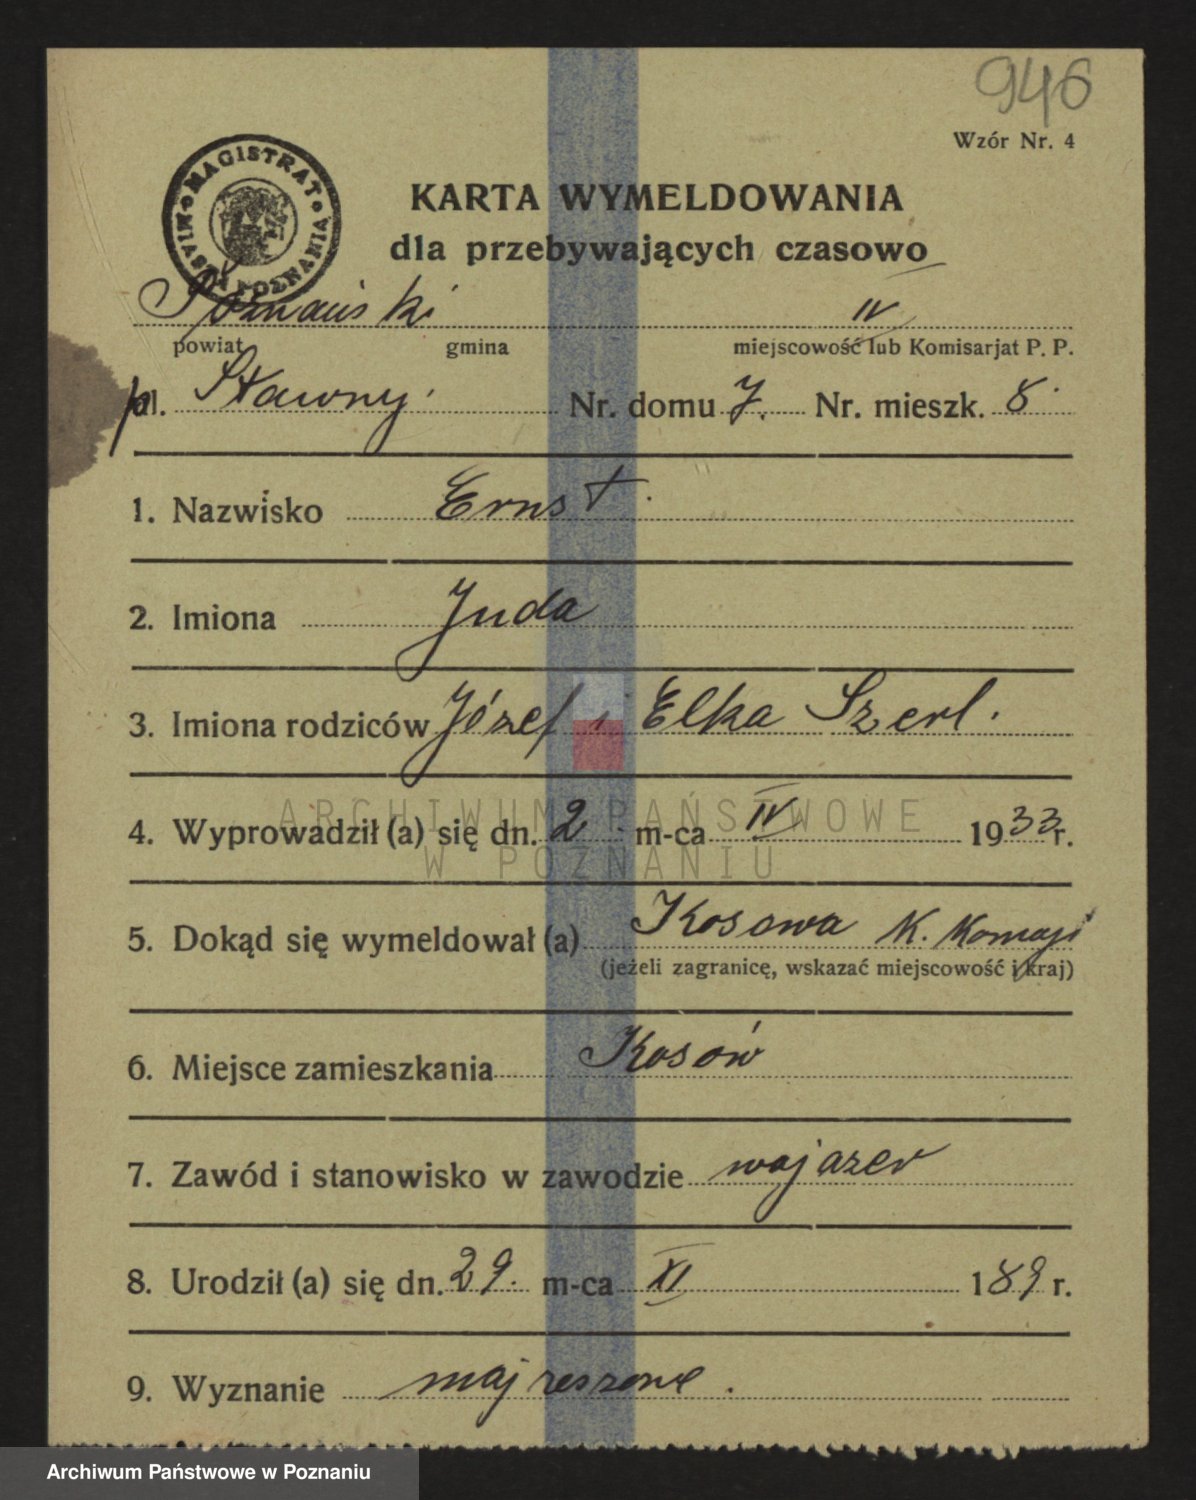 946
Wzór Nr. 4
MAGISTRAT MIASTA POZNANIA
KARTA WYMELDOWANIA
dla przebywających czasowo
Poznański IV
powiat gmina miejscowość lub Komisarjat P. P.
pl. Sławny Nr. domu 7. Nr. mieszk. 8
1. Nazwisko Ernst
2. Imiona Juda
3. Imiona rodziców Józef i Elka Szerl.
4. Wyprowadził (a) się dn. 2 m-ca IV 1933 r.
ARCHIWUM PAŃSTWOWE
W POZNANIU
5. Dokąd się wymeldował (a) Kosowa K.
(jeżeli zagranicę, wskazać miejscowość i kraj)
6. Miejsce zamieszkania Kosów
7. Zawód i stanowisko w zawodzie wojazer
8. Urodził (a) się dn. 29. m-ca XI 189 r.
9. Wyznanie
Archiwum Państwowe w Poznaniu